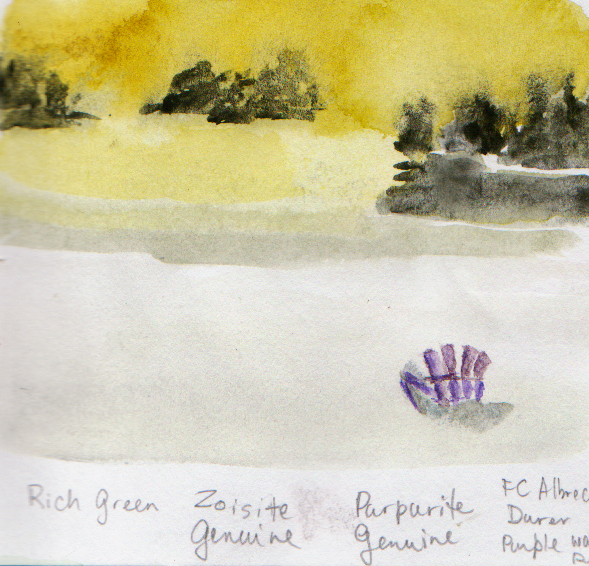 Rich Green
Zoisite
Genuine
Purpurite
Genuine
FC Albrec
Durer
Purple wa